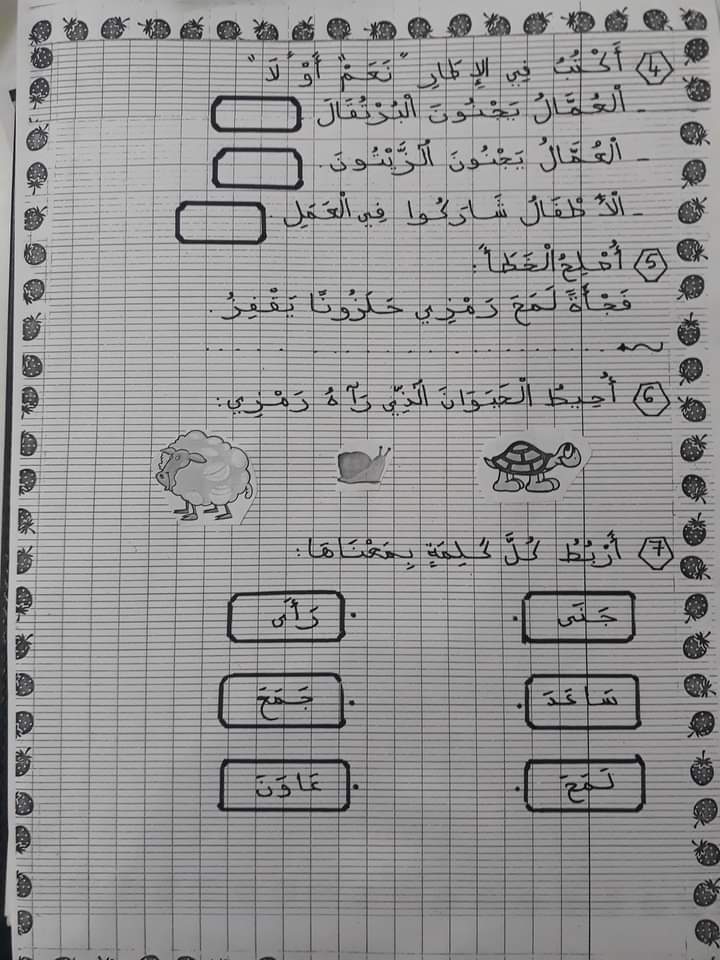 4 أَكْتُبُ فِي الإِطَارِ "نَعَمْ" أَوْ "لَا"
- الْعُمَّالُ يَجْنُونَ الْبُرْتُقَالَ.
- الْعُمَّالُ يَجْنُونَ الزَّيْتُونَ.
- الْأَطْفَالُ شَارَكُوا فِي الْعَمَلِ.
5 أُصْلِحُ الْخَطَأَ:
فَجْأَةً لَمَحَ رَمْزِي حَلَزُونًا يَقْفِزُ.
6 أُحِيطُ الْحَيَوَانَ الَّذِي رَآهُ رَمْزِي:
7 أَرْبُطُ كُلَّ كَلِمَةٍ بِمَعْنَاهَا:
جَنَى . . رَأَى
سَاعَدَ . . جَمَعَ
لَمَحَ . . عَاوَنَ